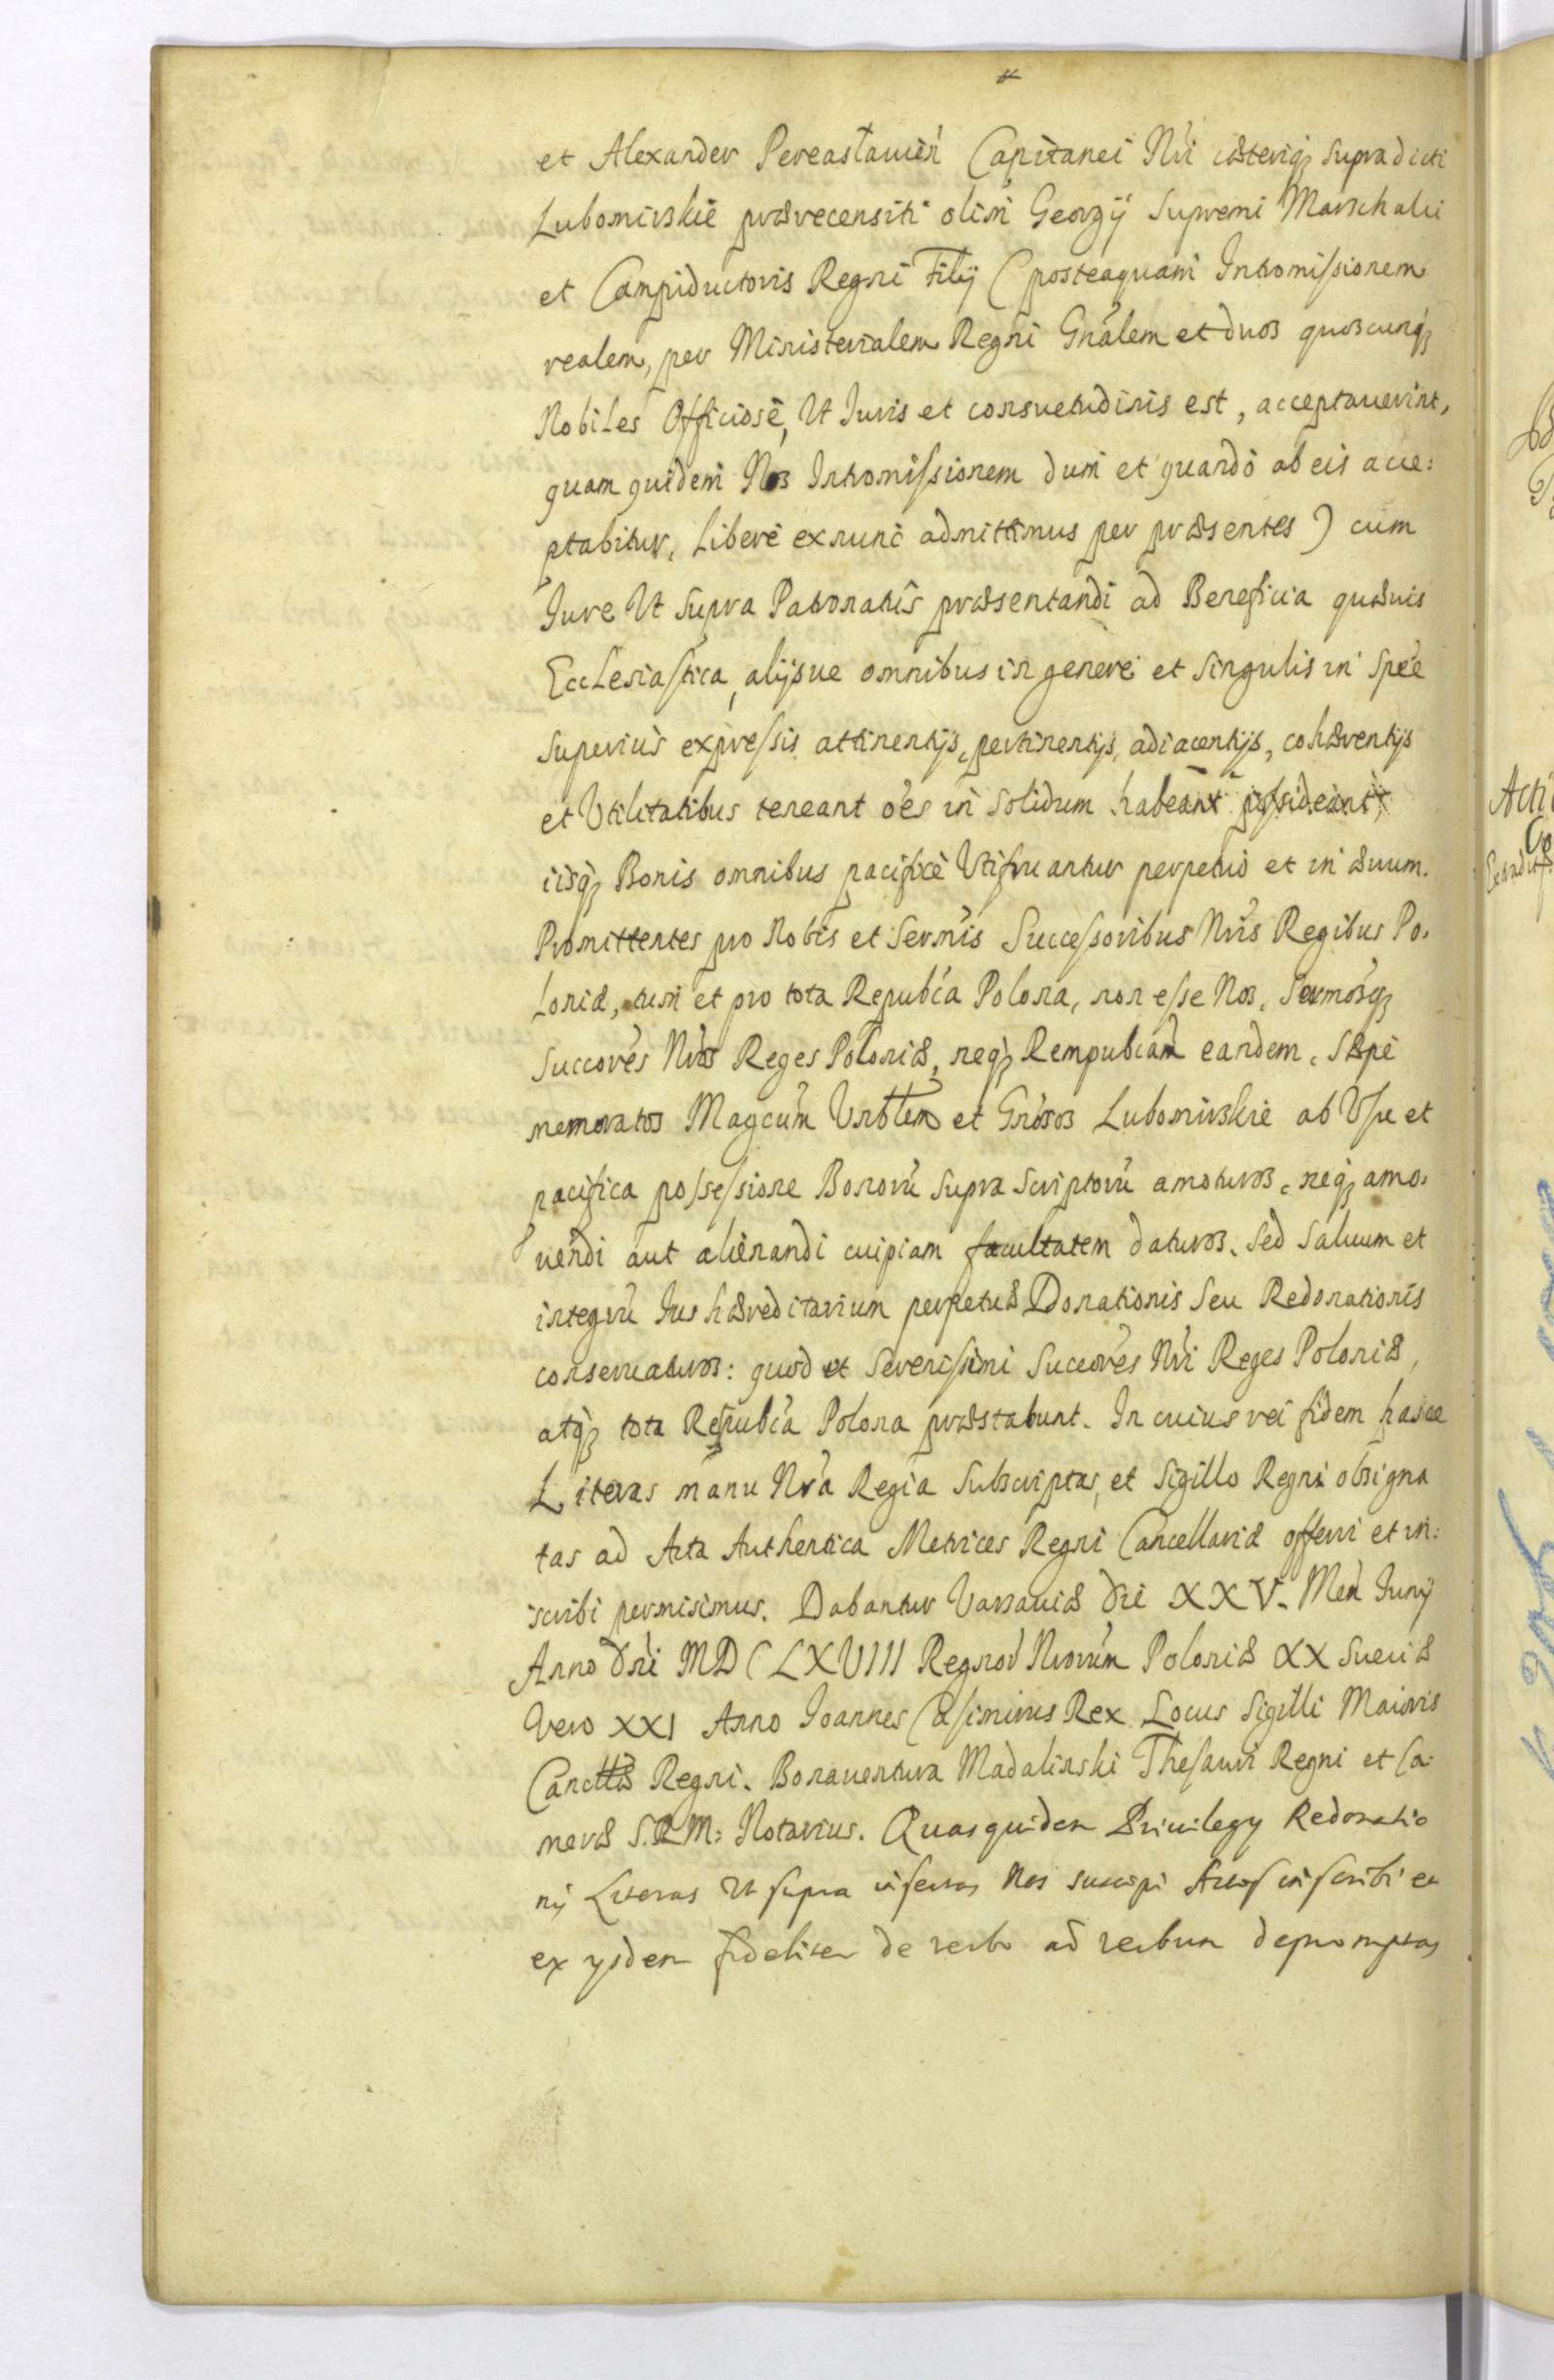 et Alexander Pereasłauień Capitanei Nri cæteriq; supradicti
Lubomirskie prærecensiti olim Georgij Supremi Marschalci
et Campiductoris Regni Filij (posteaquam Intromissionem
realem, per Ministerialem Regni Gnalem et duos quoscunq;
Nobiles Officiosè, Ut Juris et consuetudinis est, acceptauerint,
quam quidem Nos Intromissionem dum et quando ab eis acce:
ptabitur, Liberè exnunc admittimus per præsentes) cum
Jure Ut supra Patronatûs præsentandi ad Beneficia quæuis
Ecclesiastica, alijsue omnibus in genere et singulis in spée
superius expressis attinentijs, pertinentijs, adiacentijs, cohærentijs
et Utilitatibus teneant oés in solidum habeant possideant,
iisq; Bonis omnibus pacificè Utifruantur perpetuò et in æuum.
Promittentes pro Nobis et Sermis Successoribus Nris Regibus Po-
loniæ, tum et pro tota Republca Polona, non esse Nos, Sermosq;
Succores Nros Reges Poloniæ, neq; Rempubcam eandem, sæpe
memoratos Magcum Urblem et Gnosos Lubomirskie ab Usu et
pacifica possessione Bonorũ supra scriptorũ amoturos, neq; amo-
uendi aut alienandi cuipiam facultatem daturos, sed saluum et
integrũ Jus hæreditarium perpetuæ Donationis seu Redonationis
conseruaturos: quod et Serenissimi Succores Nri Reges Poloniæ,
atq; tota Respubca Polona præstabunt. In cuius rei fidem hasce
Literas manu Nra Regia Subscriptas, et Sigillo Regni obsigna
tas ad Acta Authentica Metrices Regni Cancellariæ offerri et in:
scribi permisimus. Dabantur Varsauiæ die XXV. Men Junij
Anno Dni MDCLXVIII Regnoŕ Nrorum Poloniæ XX Sueciæ
Vero XXI Anno Joannes Casimirus Rex Locus Sigilli Maioris
Cancttæ Regni. Bonauentura Madalinski Thesauri Regni et Ca-
meræ S.R.M: Notarius. Quas quidem Priuilegy Redonatio
nis Literas Ut supra insertas Nos suscipi Actis inscribi et
ex ysdem fideliter de verbo ad verbum depromptas